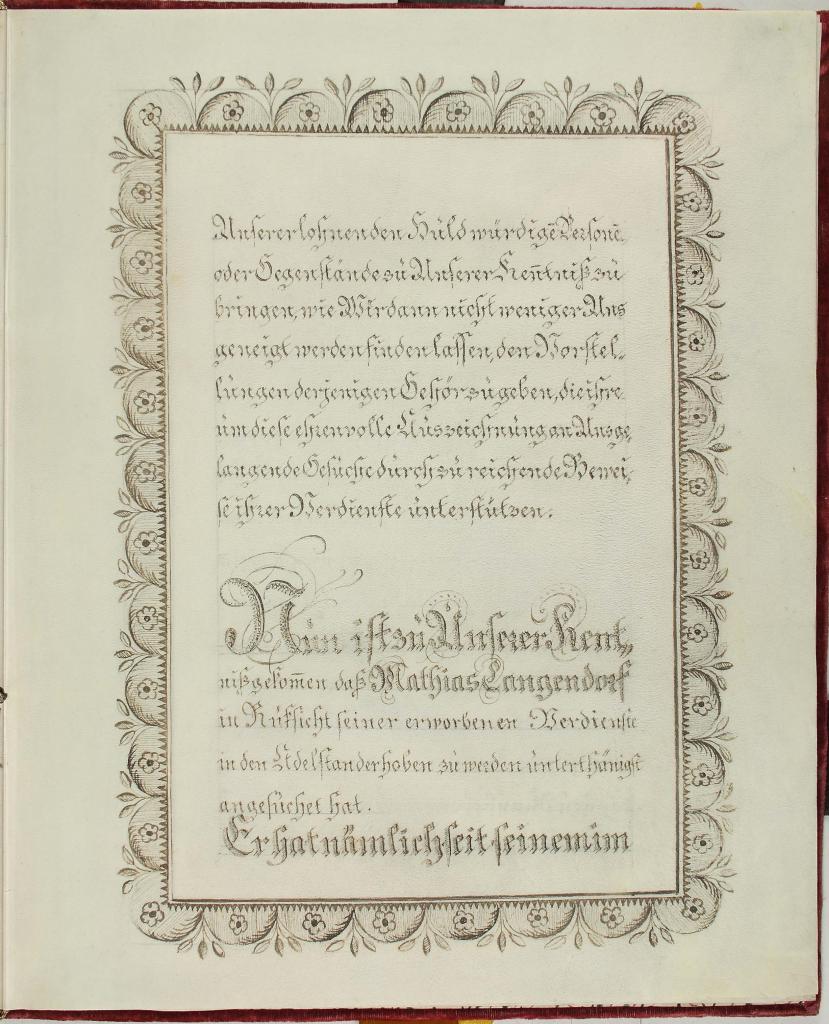 Unserer lohnenden Huld würdige Persone̅,
oder Gegenstände zu Unserer Ken̅tniß zu
bringen, wie Wir dann nicht weniger Uns
geneigt werden finden lassen, den Vorstel-
lungen derjenigen Gehör zu geben, die ihre
um diese ehrenvolle Auszeichnung an Uns ge-
langende Gesuche durch zureichende Bewei-
se ihrer Verdienste unterstützen.
Nun ist zu Unserer Kent-
niß geko̅men daß Mathias Langendorf
in Rüksicht seiner erworbenen Verdienste
in den Adelstand erhoben zu werden unterthänigst
angesuchet hat.
Er hat nämlich seit seinem im